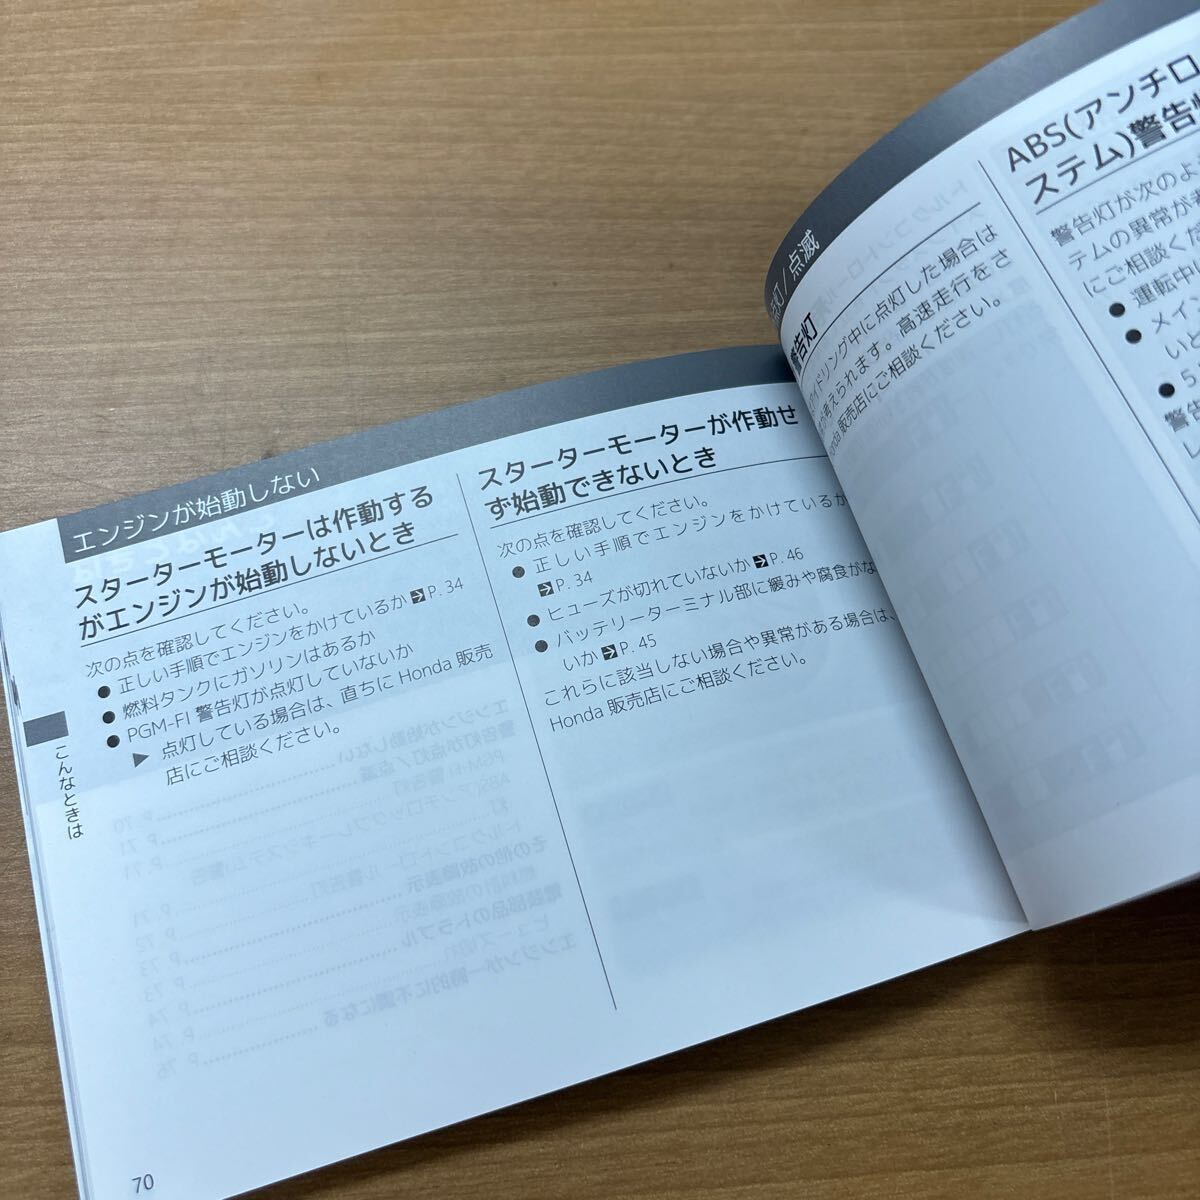 エンジンが始動しない
スターターモーターは作動する
がエンジンが始動しないとき
次の点を確認してください。
● 正しい手順でエンジンをかけているか P. 34
● 燃料タンクにガソリンはあるか
● PGM-FI 警告灯が点灯していないか
▶ 点灯している場合は、直ちに Honda 販売
店にご相談ください。
こんなときは
70
スターターモーターが作動せ
ず始動できないとき
次の点を確認してください。
● 正しい手順でエンジンをかけているか
P. 34
● ヒューズが切れていないか P. 46
● バッテリーターミナル部に緩みや腐食がな
いか P. 45
これらに該当しない場合や異常がある場合は、
Honda 販売店にご相談ください。
灯 / 点滅
警告灯
イドリング中に点灯した場合は
が考えられます。高速走行をさ
Honda 販売店にご相談ください。
ABS(アンチロ
ステム)警告
警告灯が次のよ
テムの異常が
にご相談くだ
● 運転中
● メイン
いと
● 5
警告